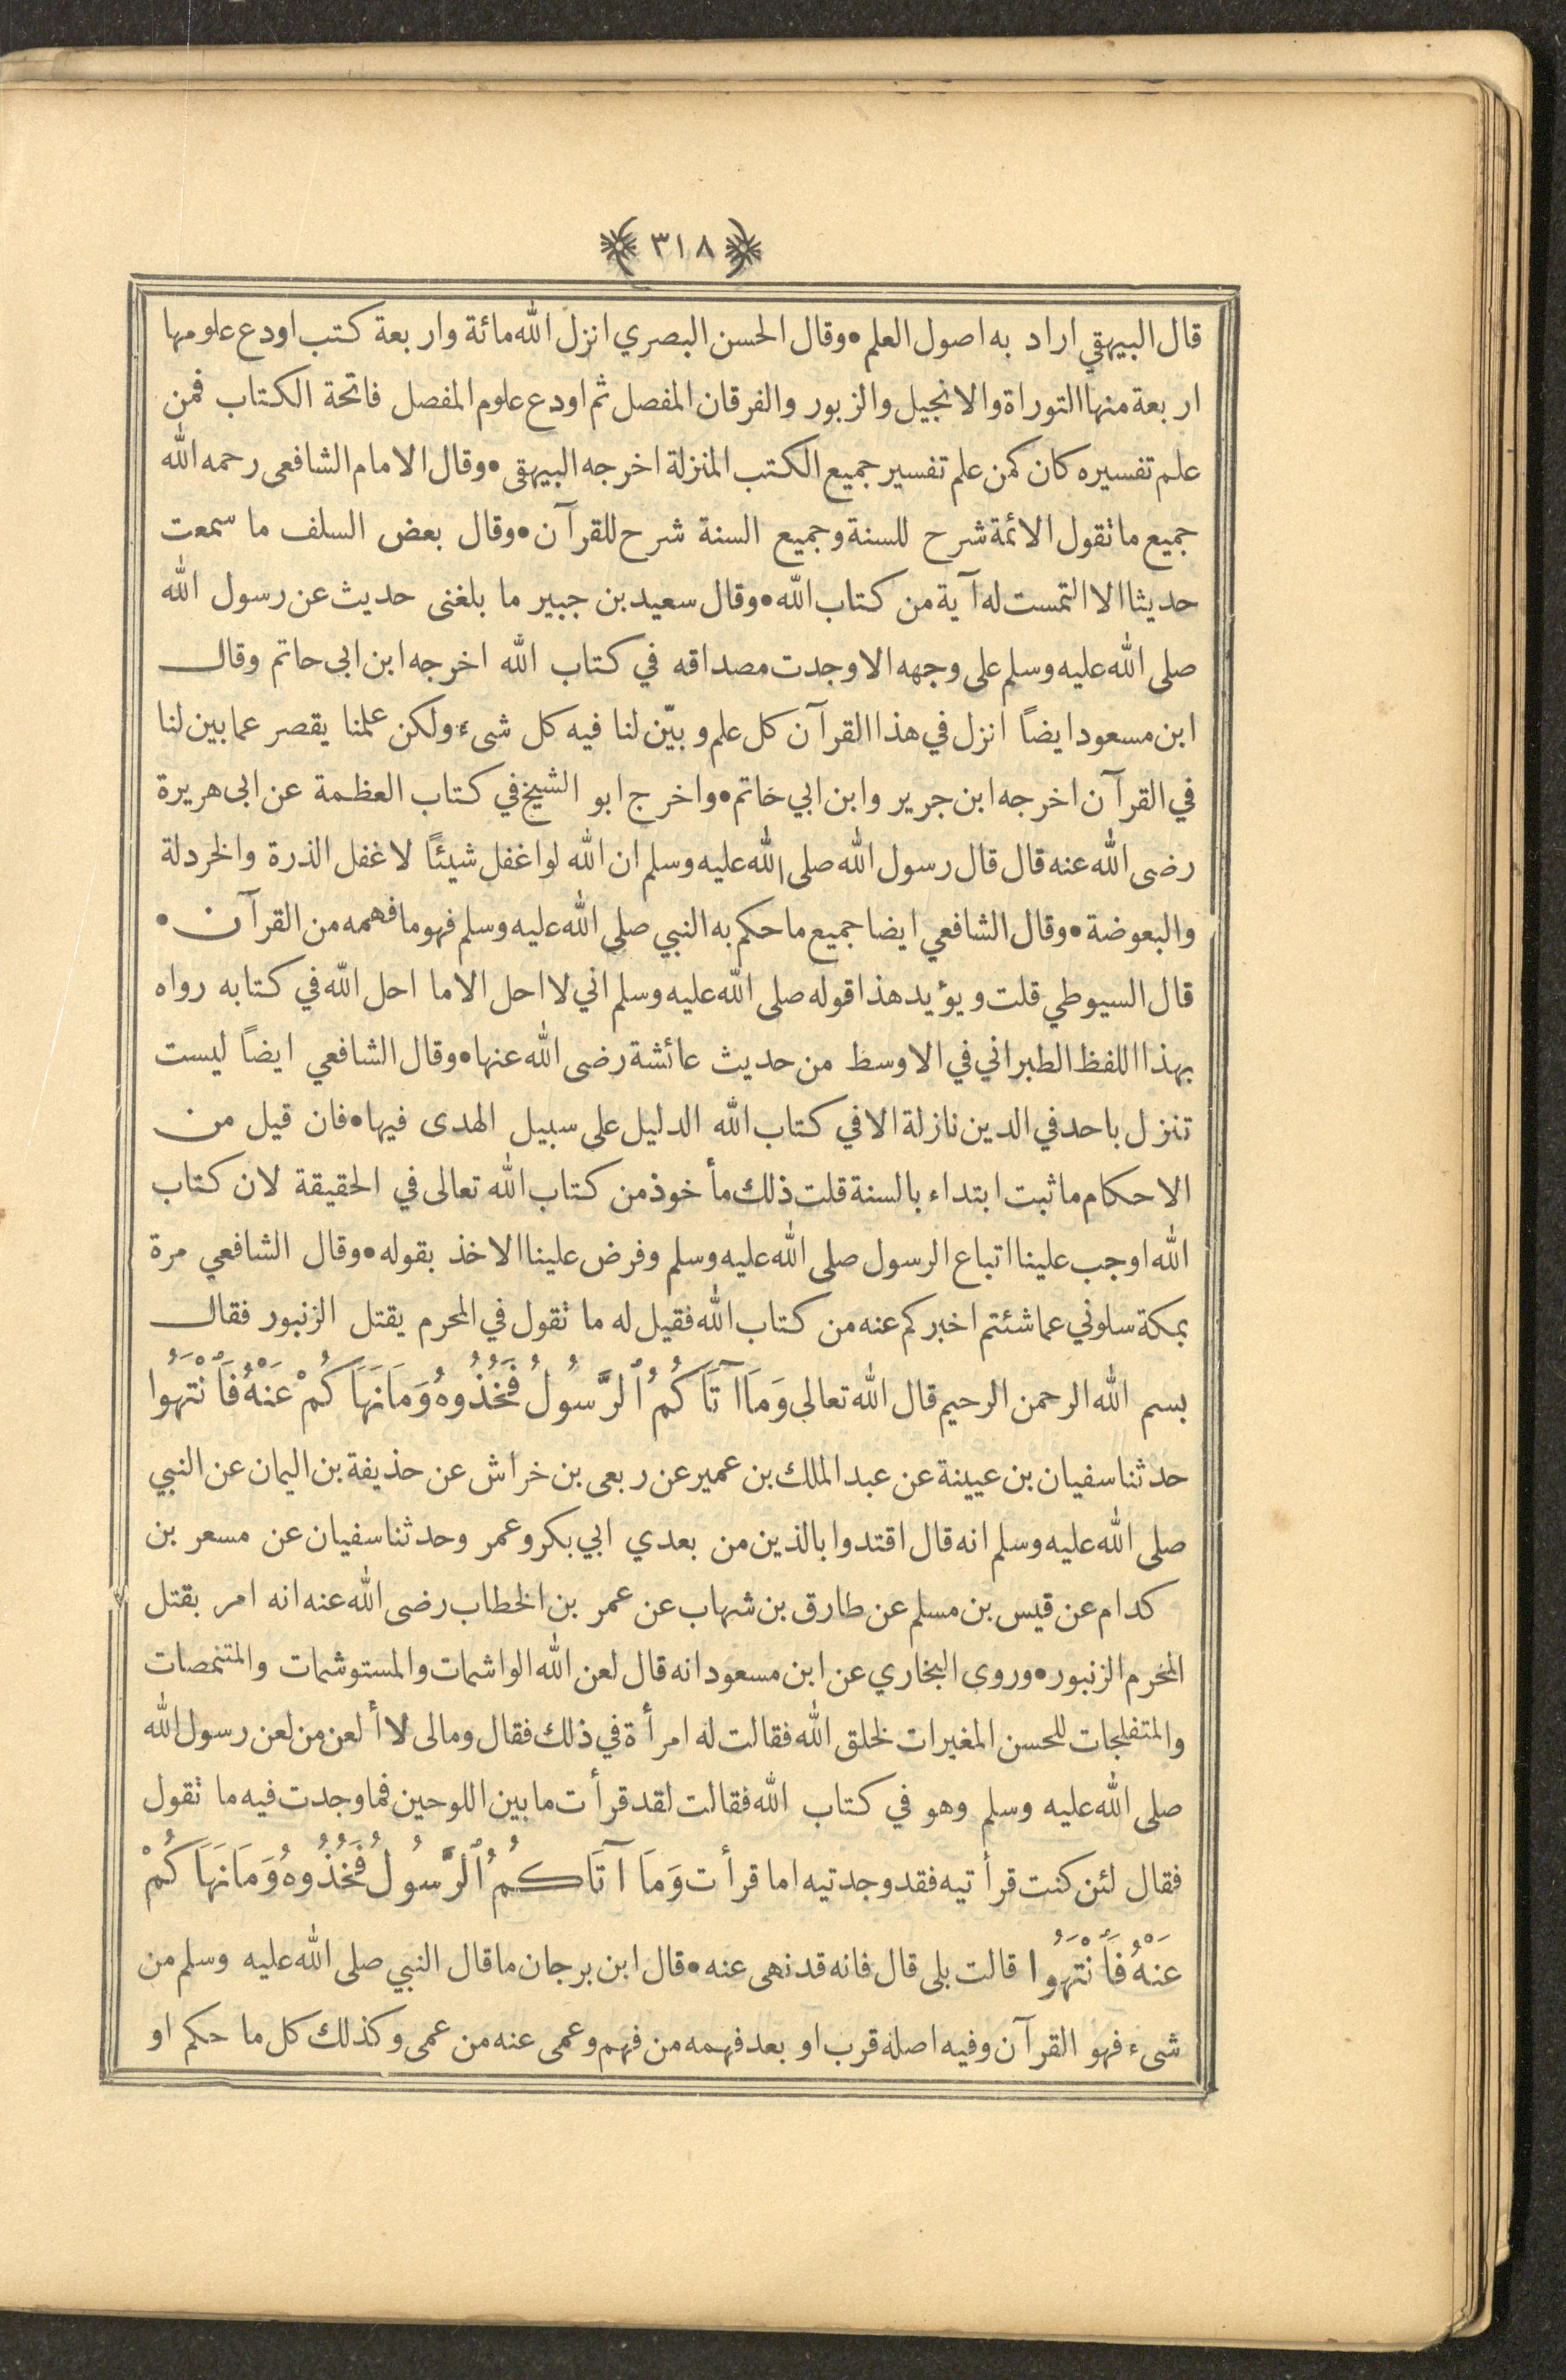 ﴿٣١٨﴾
قال البيهقي اراد به اصول العلم • وقال الحسن البصري انزل الله مائة واربعة كتب اودع علومها
اربعة منها التوراة والانجيل والزبور والفرقان المفصل ثم اودع علوم المفصل فاتحة الكتاب فمن
علم تفسيره كان كمن علم تفسير جميع الكتب المنزلة اخرجه البيهقى • وقال الامام الشافعى رحمه الله
جميع ما تقول الائمة شرح للسنة وجميع السنة شرح للقرآن • وقال بعض السلف ما سمعت
حديثا الا التمست له آية من كتاب الله • وقال سعيد بن جبير ما بلغنى حديث عن رسول الله
صلى الله عليه وسلم على وجهه الا وجدت مصداقه في كتاب الله اخرجه ابن ابى حاتم وقال
ابن مسعود ايضاً انزل في هذا القرآن كل علم وبيّن لنا فيه كل شىء ولكن علمنا يقصر عما بين لنا
في القرآن اخرجه ابن جرير وابن ابي خاتم • واخرج ابو الشيخ في كتاب العظمة عن ابى هريرة
رضى الله عنه قال قال رسول الله صلى الله عليه وسلم ان الله لو اغفل شيئاً لاغفل الذرة والخردلة
والبعوضة • وقال الشافعي ايضا جميع ما حكم به النبي صلى الله عليه وسلم فهو ما فهمه من القرآن •
قال السيوطي قلت ويؤيد هذا قوله صلى الله عليه وسلم اني لا احل الا ما احل الله في كتابه رواه
بهذا اللفظ الطبراني في الاوسط من حديث عائشة رضى الله عنها • وقال الشافعي ايضاً ليست
تنزل باحد في الدين نازلة الا في كتاب الله الدليل على سبيل الهدى فيها • فان قيل من
الاحكام ما ثبت ابتداء بالسنة قلت ذلك مأخوذ من كتاب الله تعالى في الحقيقة لان كتاب
الله اوجب علينا اتباع الرسول صلى الله عليه وسلم وفرض علينا الاخذ بقوله • وقال الشافعي مرة
بمكة سلوني عما شئتم اخبركم عنه من كتاب الله فقيل له ما تقول في المحرم يقتل الزنبور فقال
بسم الله الرحمن الرحيم قال الله تعالى وَمَا آتَاكُمُ ٱلرَّسُولُ فَخُذُوهُ وَمَا نَهَاكُمْ عَنْهُ فَٱنْتَهُوا
حدثنا سفيان بن عيينة عن عبد الملك بن عمير عن ربعى بن خراش عن حذيفة بن اليمان عن النبي
صلى الله عليه وسلم انه قال اقتدوا بالذين من بعدي ابي بكر وعمر وحدثنا سفيان عن مسعر بن
كدام عن قيس بن مسلم عن طارق بن شهاب عن عمر بن الخطاب رضى الله عنه انه امر بقتل
المخرم الزنبور • وروى البخاري عن ابن مسعود انه قال لعن الله الواشمات والمستوشمات والمتنمصات
والمتفلجات للحسن المغيرات لخلق الله فقالت له امرأة في ذلك فقال ومالى لا ألعن من لعن رسول الله
صلى الله عليه وسلم وهو في كتاب الله فقالت لقد قرأت ما بين اللوحين فما وجدت فيه ما تقول
فقال لئن كنت قرأتيه فقد وجدتيه اما قرأت وَمَا آتَاكُمُ ٱلرَّسُولُ فَخُذُوهُ وَمَا نَهَاكُمْ
عَنْهُ فَٱنْتَهُوا قالت بلى قال فانه قد نهى عنه • قال ابن برجان ما قال النبي صلى الله عليه وسلم من
شىء فهو القرآن وفيه اصله قرب او بعد فهمه من فهم وعمى عنه من عمى وكذلك كل ما حكم او